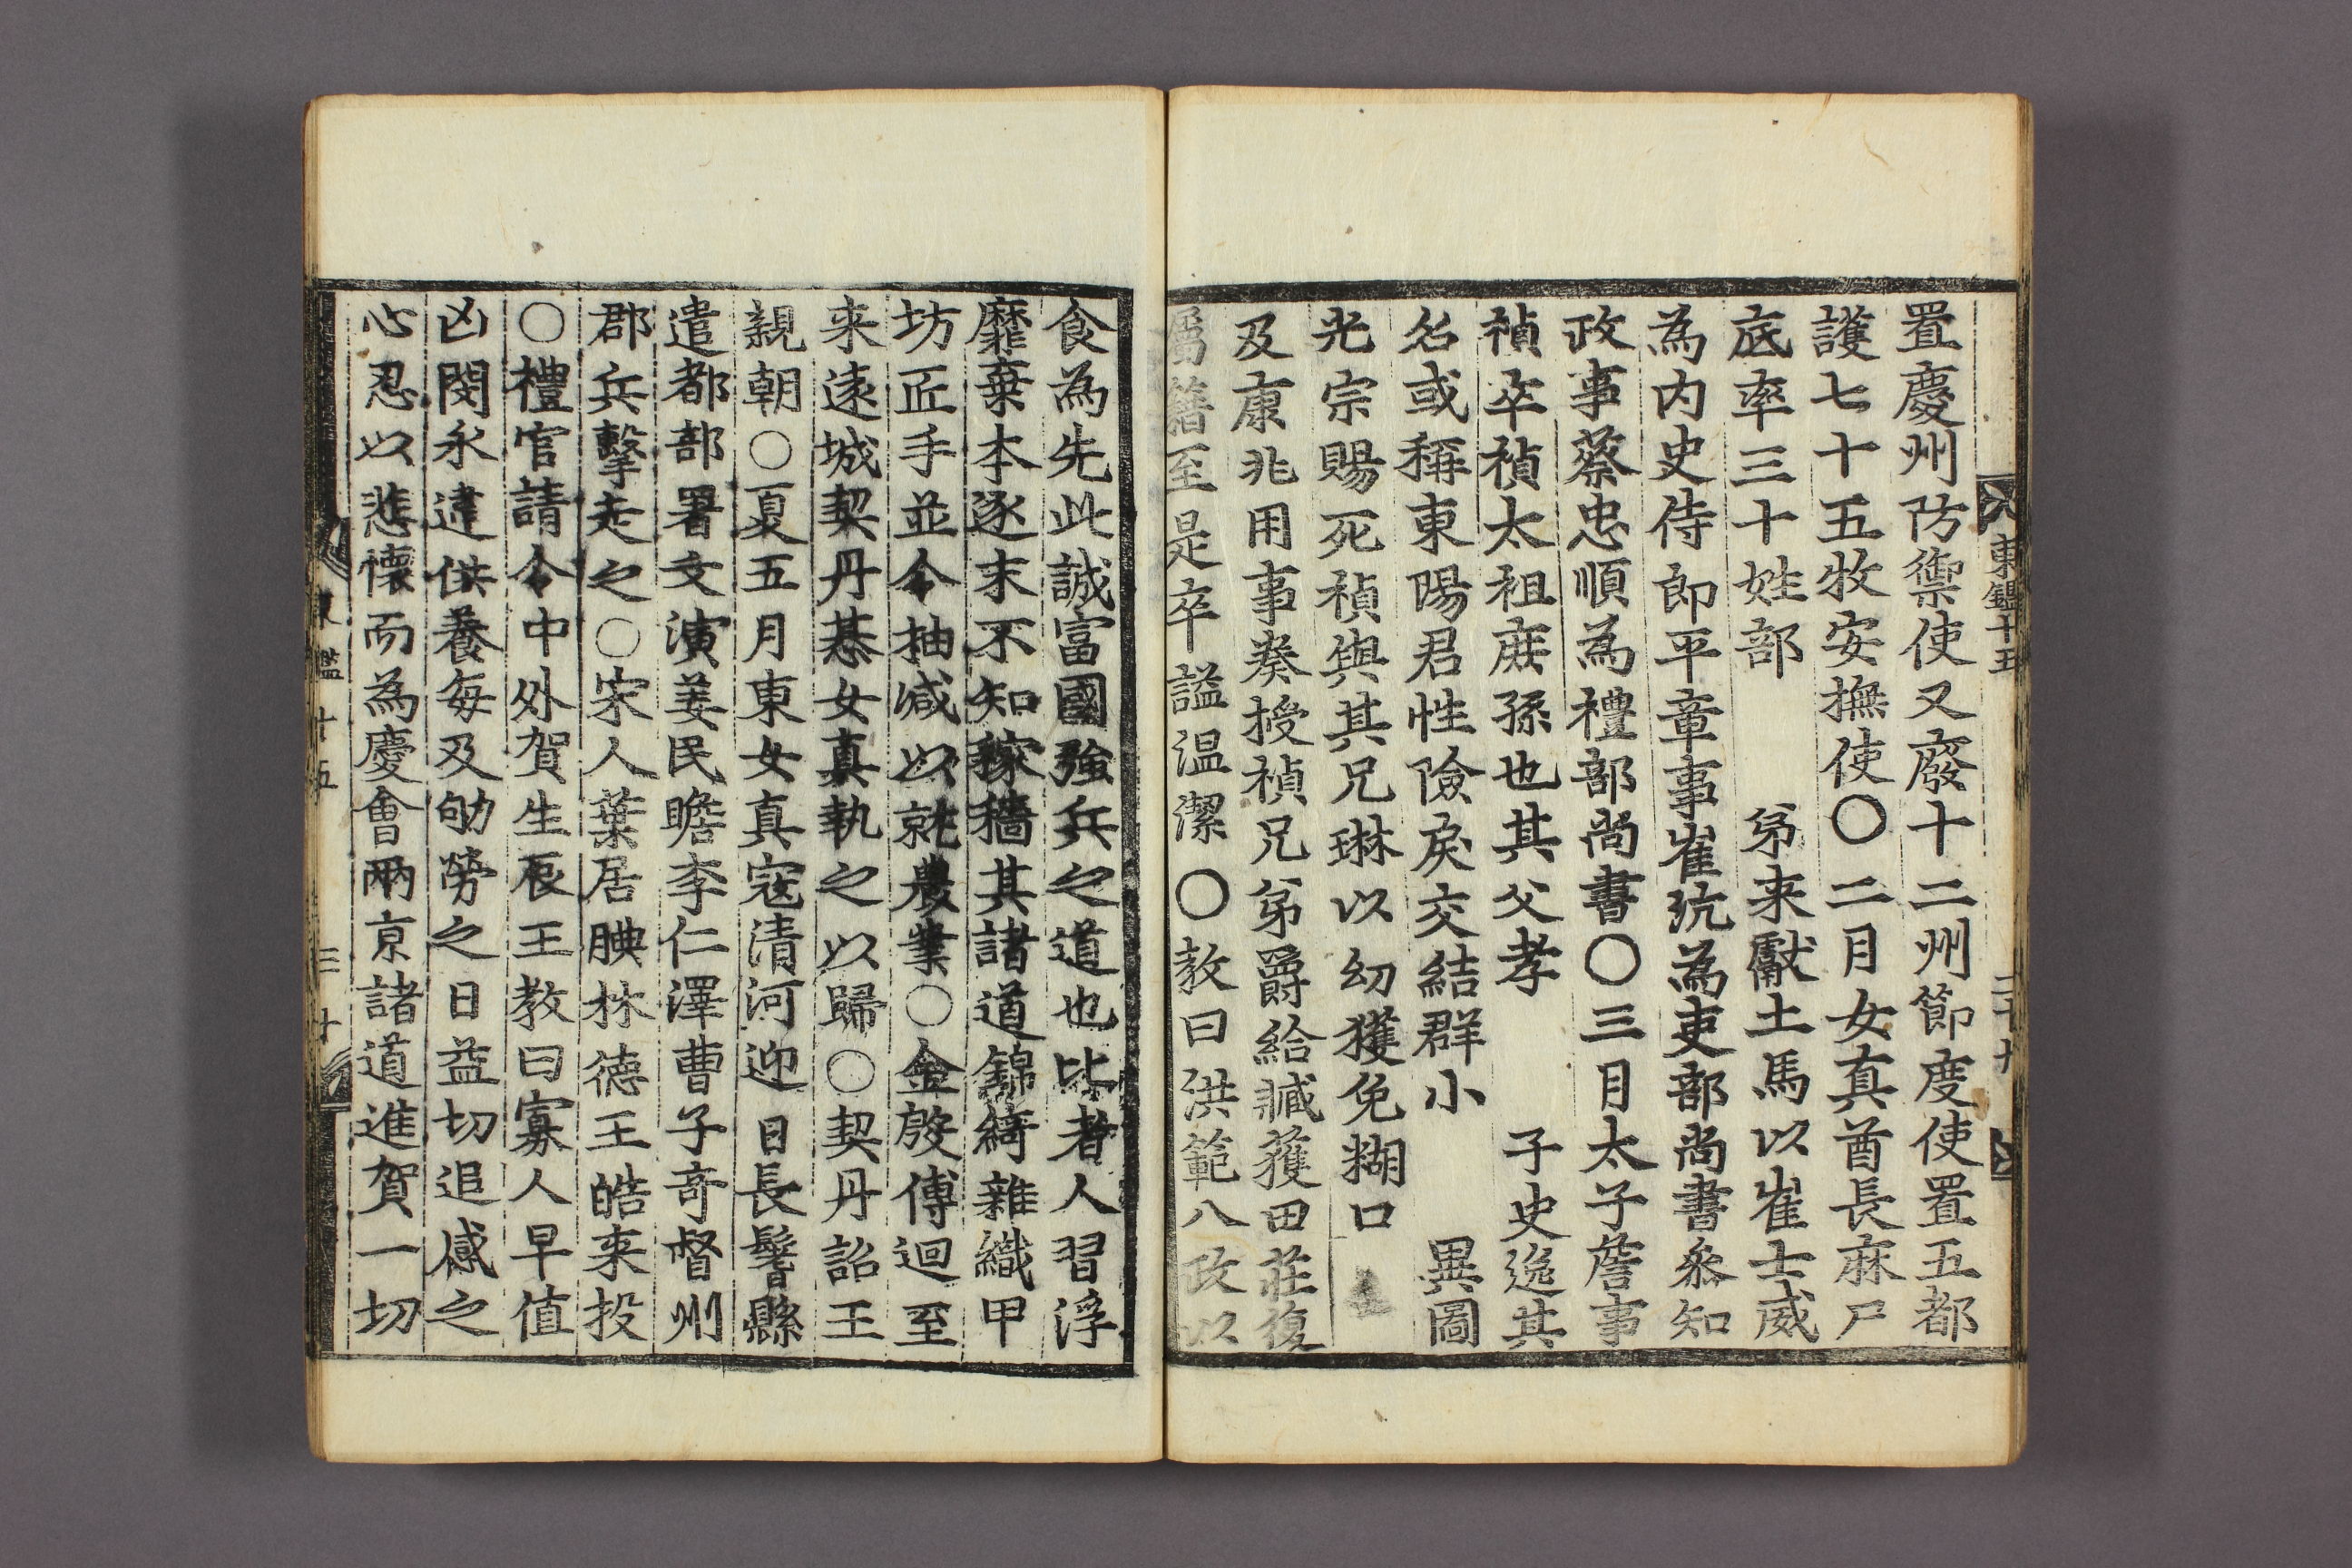 置慶州防禦使又廢十二州節度使置五都
護七十五牧安撫使〇二月女真酋長麻尸
底率三十姓部 弟来獻土馬以崔士威
為内史侍郎平章事崔沆為吏部尚書叅知
政事蔡忠順為禮部尚書〇三月太子詹事
禎卒禎太祖庶孫也其父孝 子史逸其
名或稱東陽君性險戾交結群小 異圖
光宗賜死禎與其兄琳以幼獲免糊口
及康兆用事奏授禎兄弟爵給臧獲田莊復
屬籍至是卒謚温潔〇教曰洪範八政以
東鑑十五 二十九
食為先此誠富國強兵之道也比者人習浮
靡棄本逐末不知稼穡其諸道錦綺雜織甲
坊匠手並令抽减以就農業〇金殷傅迴至
来遠城契丹惎女真執之以歸〇契丹詔王
親朝〇夏五月東女真寇清河迎日長鬐縣
遣都部署文演姜民瞻李仁澤曹子竒督州
郡兵擊走之〇宋人葉居腆林德王皓来投
〇禮官請令中外賀生辰王教曰寡人早值
凶閔永違供養每及劬勞之日益切追感之
心忍以悲懷而為慶會兩京諸道進賀一切
東鑑十五 三十